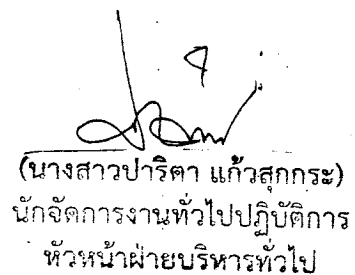 (นางสาวปาริตา แก้วสุกกระ)
นักจัดการงานทั่วไปปฏิบัติการ
หัวหน้าฝ่ายบริหารทั่วไป